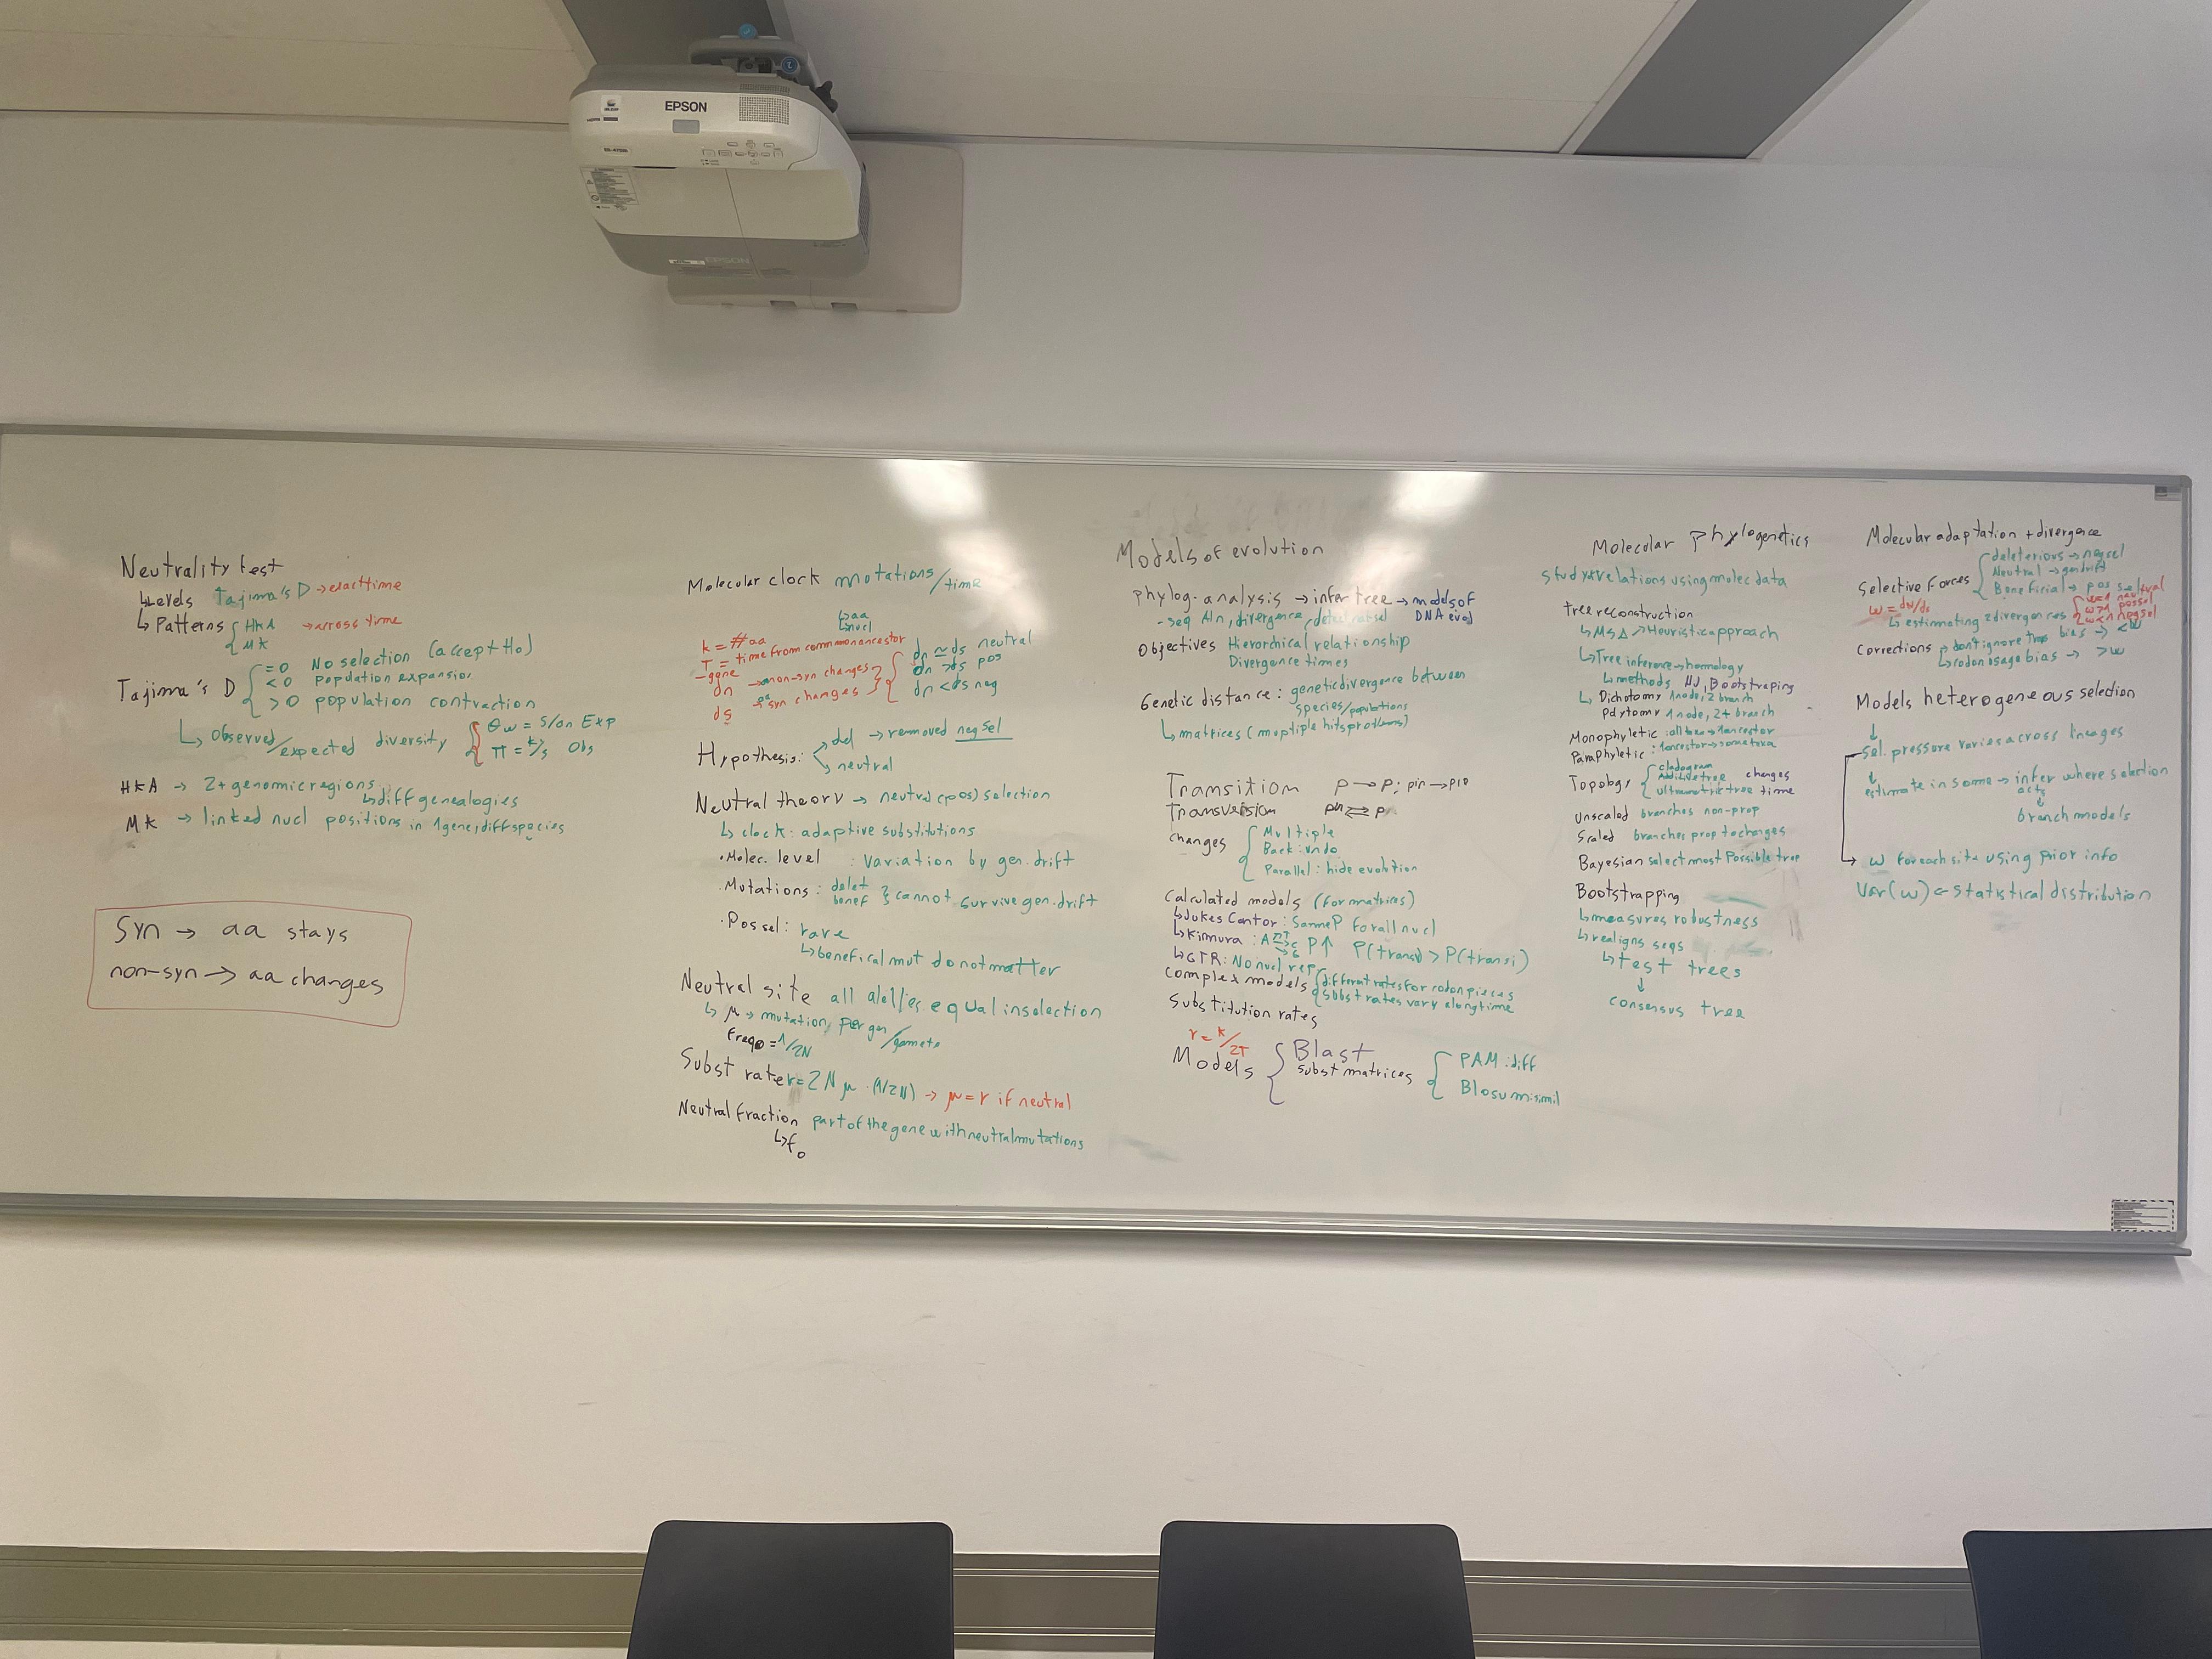 EPSON
EPSON
Neutrality test
↳Levels Tajima's D → exact time
↳Patterns { HKA → across time
MK
Tajima's D { =0 No selection (accept H0)
<0 population expansion
>0 population contraction
↳ observed/expected diversity { θw = S/an Exp
π = k/s Obs
HKA → 2+ genomic regions
↳diff genealogies
MK → linked nucl positions in 1gene, diff species
Syn → aa stays
non-syn → aa changes
Molecular clock mutations/time
↳aa
↳nucl
k = #aa
T = time from common ancestor
-gene
dn → non-syn changes
ds syn changes
dn ≃ ds neutral
dn > ds pos
dn < ds neg
Hypothesis: del → removed neg sel
neutral
Neutral theory → neutral (pos) selection
↳ clock: adaptive substitutions
·Molec. level : variation by gen.drift
·Mutations: delet
benef } cannot survive gen.drift
·Pos sel: rare
↳benefical mut do not matter
Neutral site all alelles equal in selection
↳ μ → mutation per gen/gamete
Freq0 = 1/2N
Subst rate r = 2Nμ · (1/2N) → μ = r if neutral
Neutral fraction part of the gene with neutral mutations
↳f0
Models of evolution
phylog. analysis → infer tree → models of DNA evol
-seq Aln, divergence,
Objectives Hierarchical relationship
Divergence times
Genetic distance: genetic divergence between
species/populations
↳matrices (moptiple hits problems)
Transition P → P; pir → pir
Transversion
changes { Multiple
Back: undo
Parallel: hide evolution
Calculated models (for matrices)
↳Jukes Cantor: Same P for all nucl
↳Kimura: P↑ P(transv) > P(transi)
↳GTR: No nucl rep
complex models { different rates for codon pieces
subst rates vary along time
Substitution rates
r = k/2T
Models { Blast
subst matrices { PAM: diff
Blosum: simil
Molecular phylogenetics
study relations using molec data
tree reconstruction
↳MSA → Heuristic approach
↳Tree inference → homology
↳methods NJ, Bootstraping
↳ Dichotomy 1node, 2 branch
Polytomy 1 node, 2+ branch
Monophyletic: all taxa → 1ancestor
Paraphyletic: 1ancestor → some taxa
Topology { cladogram
Additive tree changes
ultrametric tree time
Unscaled branches non-prop
Scaled branches prop to changes
Bayesian select most possible tree
Bootstrapping
↳measures robustness
↳realigns seqs
↳test trees
↓
consensus tree
Molecular adaptation + divergence
Selective Forces { deleterious → neg sel
Neutral → gen drift
Beneficial → pos sel
ω = dn/ds
↳ estimating 2 divergences { ω=1 neutral
ω>1 pos sel
ω<1 neg sel
Corrections → don't ignore bias → <ω
↳codon usage bias → >ω
Models heterogeneous selection
↓
sel. pressure varies across lineages
↓
estimate in some → infer where selection
acts
↓
branch models
→ ω for each site using prior info
Var(ω) ← statistical distribution